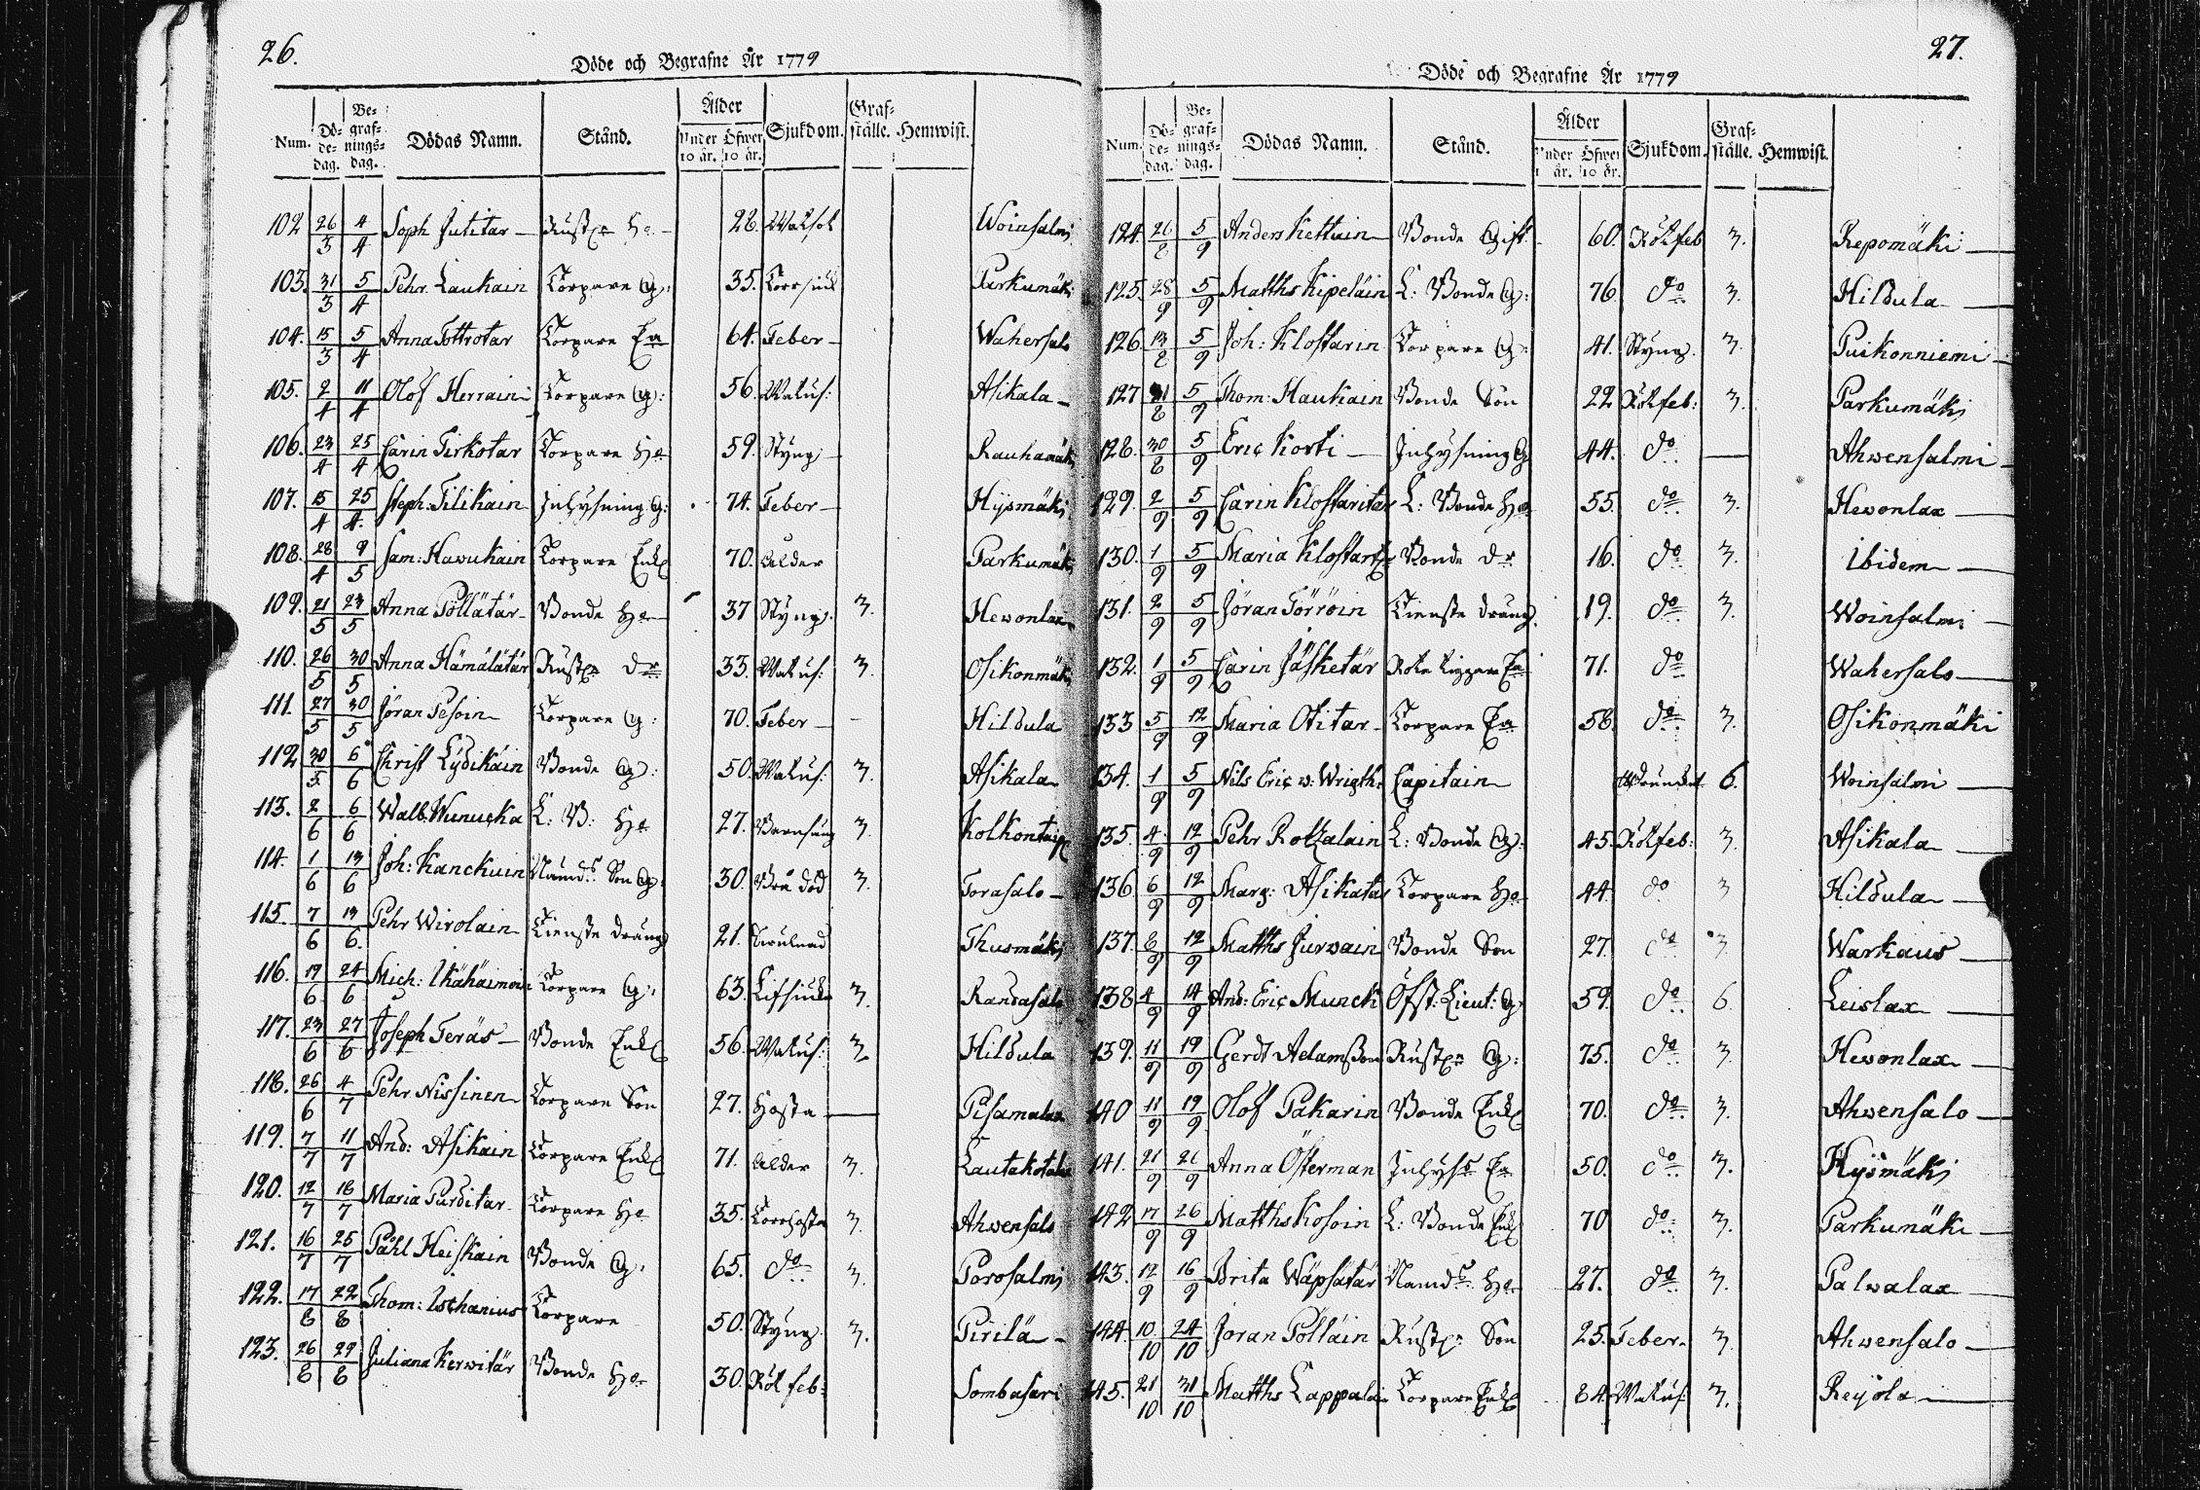 26.
Döde och Begrafne År 1779
Num. Döde-dag. Begrafnings-dag. Dödas Namn. Stånd. Ålder Under 10 år. Öfwer 10 år. Sjukdom. Grafställe. Hemwist.
102 26/3 4/4 Soph Jutitar Rust: 26. Woinsalmi
103. 31/3 5/4 Pehr Laukain Torpare G: 35. Parkumäki
104. 15/3 5/4 Anna Tottrotar Torpare Ea 64. Feber Wahersalo
105. 2/4 11/4 Olof Herrain Torpare G: 56. Asikala
106. 23/4 25/4 Carin Tirkotar Torpare Ho 59. Styng Rauhamäki
107. 15/4 25/4. Steph: Tilikain Inhysning G: 74. Feber Hysmäki
108. 28/4 9/5 Sam: Hawukain Torpare Enkl 70. Ålder Parkumäki
109. 21/5 23/5 Anna Pöllätär Bonde Ho 37 Styng. 3. Hewonlax
110. 26/5 30/5 Anna Hämälätär Rust: Dr 33. 3. Osikonmäki
111. 27/5 30/5 Jöran Pesoin Torpare G: 70. Feber Hildula
112 30/5 6/6 Christ Lydikäin Bonde G: 50. 3. Asikala
113. 2/6 6/6 Walb. Wunucka L: B: Ho 27. Barnsäng 3. Kolkontaip
114. 1/6 13/6 Joh: Kanckuin Nämd: Son G: 30. Brå död 3. Torasalo
115. 7/6 13/6. Pehr Wirolain Tienste dräng 21. Thusmäki
116. 19/6 24/6 Mich: Ikähäimoin Torpare G: 63. 3. Randasalo
117. 23/6 27/6 Joseph Teräs Bonde Enkl 56. 3. Hildula
118. 26/6 4/7 Pehr Nissinen Torpare Son 27. Hosta Pisamalax
119. 7/7 11/7 And: Asikain Torpare Enkl 71. Ålder 3. Lautakotalax
120. 12/7 18/7 Maria Purditar Torpare Ho 35. Torrhosta 3. Ahwensalo
121. 16/7 25/7 Påhl Heiskain Bonde G. 65. do 3. Porosalmi
122. 17/8 22/8 Thom: Torpare 50. Styng. 3. Pirilä
123. 26/8 29/8 Juliana Kerwitär Bonde Ho 30. Röt feb: Sombasari
27.
Döde och Begrafne År 1779
Num. Döde-dag. Begrafnings-dag. Dödas Namn. Stånd. Ålder Under år. Öfwer 10 år. Sjukdom. Grafställe. Hemwist.
124. 26/8 5/9 Anders Kettuin Bonde Gift 60. Rötfeb 3. Repomäki
125. 28/9 5/9 Matths Kipeläin L: Bonde G: 76 do 3. Hildula
126. 13/8 5/9 Joh: Klostarin Torpare G: 41. Styng. 3. Puikonniemi
127 21/8 5/9 Thom: Haukain Bonde Son 22 Rötfeb: 3. Parkumäki
128. 30/8 5/9 Eric Korti Inhysning G 44. do Ahwensalmi
129. 2/9 5/9 Carin Klostaritar L: Bonde Ho 55. do 3. Hewonlax
130. 1/9 5/9 Maria Klostar Bonde Dr 16. do 3. Ibidem
131. 2/9 5/9 Jöran Törröin Tienste dräng. 19. do 3. Woinsalmi
132. 1/9 5/9 Carin Jäsketär Ea 71. do Wahersalo
133 5/9 12/9 Maria Otitar Torpare Ea 58. do 3. Osikonmäki
134. 1/9 5/9 Nils Eric v: Wrigth: Capitain 6. Woinsalmi
135. 4/9 12/9 Pehr Rotzalain L: Bonde G: 45. Rötfeb: 3. Asikala
136. 6/9 12/9 Marg: Asikatar Torpare Ho 44. do 3 Hildula
137. 8/9 12/9 Matths Jurwain Bonde Son 27. do 3. Warkaus
138 4/9 14/9 And: Eric Munck Öfst: Lieut: G: 59. do 6. Leislax
139. 11/9 19/9 Gerdt Adamsson Rust: G: 75. do 3. Hewonlax
140 11/9 19/9 Olof Pakarin Bonde Enkl 70. do 3. Ahwensalo
141. 21/9 21/9 Anna Österman Inhys: Ea 50. do 3. Hysmäki
142 17/9 26/9 Matths Kosoin L: Bonde Enkl 70 do 3. Parkumäki
143. 12/9 16/9 Brita Wäpsätär Nämd: Ho 27. do 3. Palwalax
144. 10/10 24/10 Jöran Pölläin Rust: Son 25. Feber 3. Ahwensalo
145. 21/10 31/10 Matths Lappalain Torpare Enkl 84. 3. Reijola